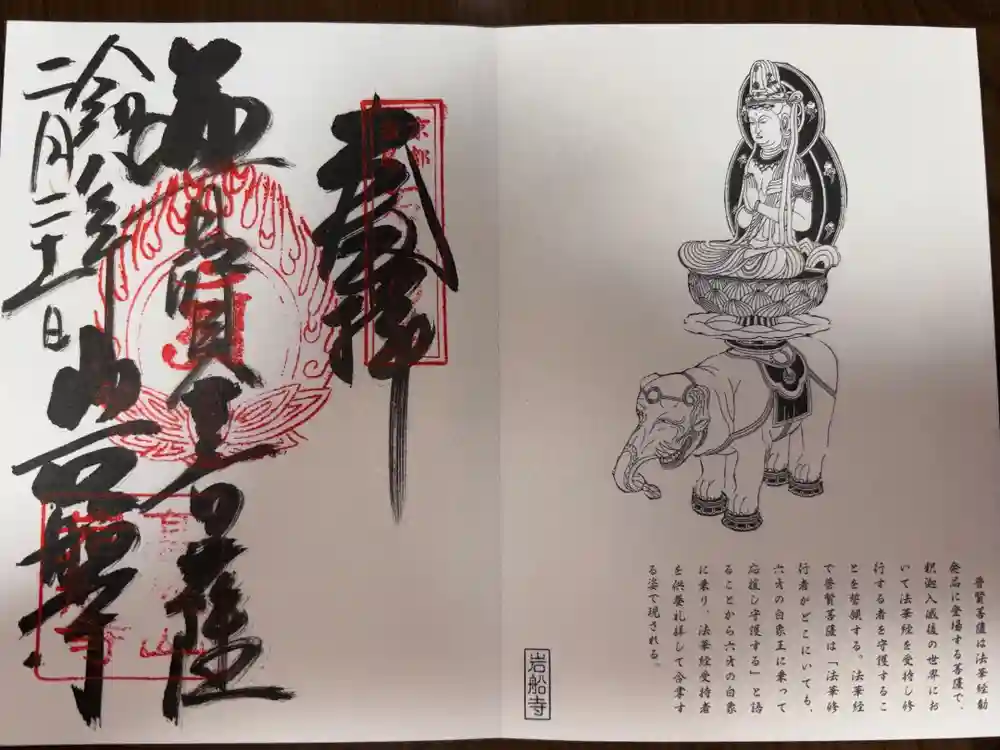 普賢菩薩は法華経勧
発品に登場する菩薩で、
釈迦入滅後の世界にお
いて法華経を受持し修
行する者を守護するこ
とを誓願する。法華経
で普賢菩薩は「法華修
行者がどこにいても、
六牙の白象王に乗って
応援し守護する」と語
ることから六牙の白象
に乗り、法華経受持者
を供養礼拝して合掌す
る姿で現される。
岩船寺
奉拝
普賢菩薩
岩船寺